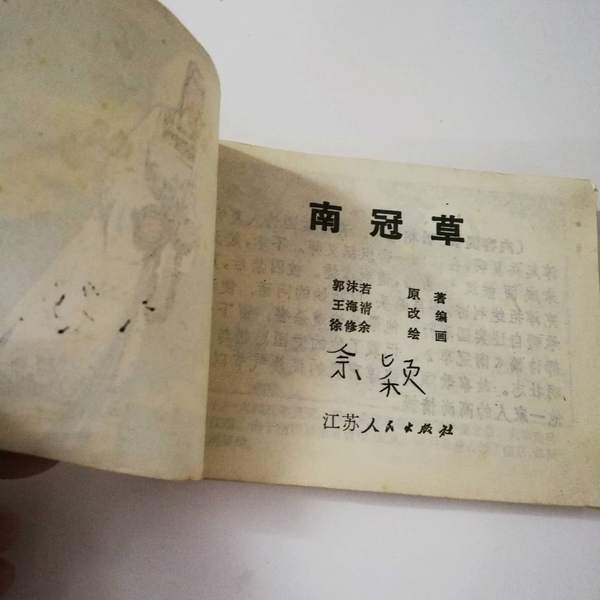 南冠草
郭沫若 原著
王海清 改编
徐修余 绘画
佘颖
江苏人民出版社